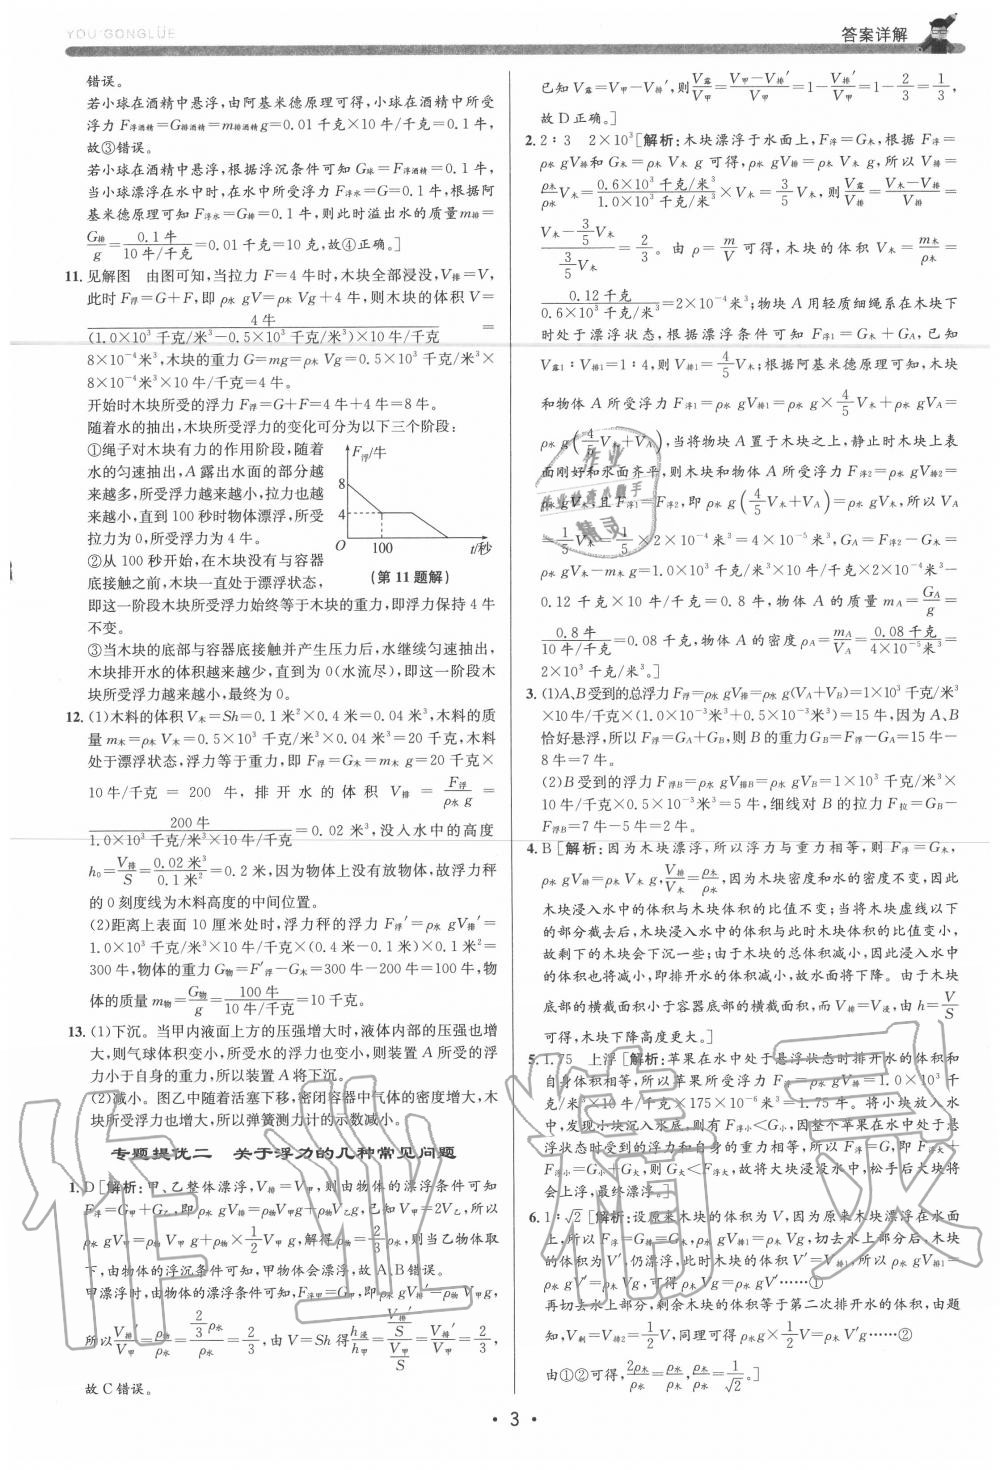 YOU GONGLÜE
答案详解
错误。
若小球在酒精中悬浮,由阿基米德原理可得,小球在酒精中所受
浮力 F浮酒精=G排酒精=m排酒精g=0.01 千克×10 牛/千克=0.1 牛,
故③错误。
若小球在酒精中悬浮,根据浮沉条件可知 G球=F浮酒精=0.1 牛,
当小球漂浮在水中时,在水中所受浮力 F浮水=G=0.1 牛,根据阿
基米德原理可知 F浮水=G排=0.1 牛,则此时溢出水的质量m排=
G排/g=0.1 牛/10 牛/千克=0.01 千克=10 克,故④正确。]
11. 见解图 由图可知,当拉力 F=4 牛时,木块全部浸没,V排=V,
此时 F浮=G+F,即 ρ水 gV=ρ木 Vg+4 牛,则木块的体积 V=
4 牛/(1.0×10³ 千克/米³-0.5×10³ 千克/米³)×10 牛/千克 =
8×10⁻⁴米³,木块的重力 G=mg=ρ木 Vg=0.5×10³ 千克/米³×
8×10⁻⁴米³×10 牛/千克=4 牛。
开始时木块所受的浮力 F浮=G+F=4 牛+4 牛=8 牛。
随着水的抽出,木块所受浮力的变化可分为以下三个阶段:
①绳子对木块有力的作用阶段,随着
水的匀速抽出,A 露出水面的部分越
来越多,所受浮力越来越小,拉力也越
来越小,直到 100 秒时物体漂浮,所受
拉力为 0,所受浮力为 4 牛。
②从 100 秒开始,在木块没有与容器
底接触之前,木块一直处于漂浮状态,
即这一阶段木块所受浮力始终等于木块的重力,即浮力保持 4 牛
不变。
F浮/牛
8
4
O 100 t/秒
(第 11 题解)
③当木块的底部与容器底接触并产生压力后,水继续匀速抽出,
木块排开水的体积越来越少,直到为 0(水流尽),即这一阶段木
块所受浮力越来越小,最终为 0。
12. (1)木料的体积 V木=Sh=0.1 米²×0.4 米=0.04 米³,木料的质
量 m木=ρ木 V木=0.5×10³ 千克/米³×0.04 米³=20 千克,木料
处于漂浮状态,浮力等于重力,即 F浮=G木=m木 g=20 千克×
10 牛/千克 = 200 牛,排开水的体积 V排 = F浮/ρ水 g =
200 牛/1.0×10³ 千克/米³×10 牛/千克=0.02 米³,没入水中的高度
h₀=V排/S=0.02 米³/0.1 米²=0.2 米,因为物体上没有放物体,故浮力秤
的 0 刻度线为木料高度的中间位置。
(2)距离上表面 10 厘米处时,浮力秤的浮力 F浮′=ρ水 gV排′=
1.0×10³ 千克/米³×10 牛/千克×(0.4 米-0.1 米)×0.1 米²=
300 牛,物体的重力 G物=F′浮-G木=300 牛-200 牛=100 牛,物
体的质量 m物=G物/g=100 牛/10 牛/千克=10 千克。
13. (1)下沉。当甲内液面上方的压强增大时,液体内部的压强也增
大,则气球体积变小,所受水的浮力也变小,则装置 A 所受的浮
力小于自身的重力,所以装置 A 将下沉。
(2)减小。图乙中随着活塞下移,密闭容器中气体的密度增大,木
块所受浮力也增大,所以弹簧测力计的示数减小。
专题提优二 关于浮力的几种常见问题
1. D [解析:甲、乙整体漂浮,V排=V甲,则由物体的漂浮条件可知
F浮=G甲+G乙,即 ρ水 gV甲=ρ物V甲g+ρ物V乙g,已知 V甲=2V乙,所以
ρ水 gV甲=ρ物 V甲 g+ρ物×1/2V甲 g,解得ρ物=2/3ρ水,则当乙物体取
下,由物体的浮沉条件可知,甲物体会漂浮,故 A、B 错误。
甲漂浮时,由物体的漂浮条件可知,F浮甲=G甲,即 ρ水 gV排′=ρ物 V甲g,
所以V排′/V甲=ρ物/ρ水=2/3ρ水/ρ水=2/3,由 V=Sh 得h浸/h甲=V排′/S/V甲/S=V排′/V甲=2/3,
故 C 错误。
已知 V露=V甲-V排′,则V露/V甲=V甲-V排′/V甲=1-V排′/V甲=1-2/3=1/3,
故 D 正确。]
2. 2∶3 2×10³ [解析:木块漂浮于水面上,F浮=G木,根据 F浮=
ρ水 gV排和 G木=ρ木 V木 g 可得,ρ水 gV排=ρ木 V木 g,所以 V排=
ρ木/ρ水V木=0.6×10³ 千克/米³/1.0×10³ 千克/米³×V木=3/5V木,则V露/V排=V木-V排/V排=
V木-3/5V木/3/5V木=2/3。由 ρ=m/V可得,木块的体积 V木=m木/ρ木=
0.12 千克/0.6×10³ 千克/米³=2×10⁻⁴米³;物块 A 用轻质细绳系在木块下
时处于漂浮状态,根据漂浮条件可知 F浮1=G木+GA,已知
V露1∶V排1=1∶4,则 V排1=4/5V木;根据阿基米德原理可知,木块
和物体 A 所受浮力 F浮1=ρ水 gV排1=ρ水 g×4/5V木+ρ水 gVA=
ρ水 g(4/5V木+VA),当将物块 A 置于木块之上,静止时木块上表
面刚好和水面齐平,则木块和物体 A 所受浮力 F浮2=ρ水 gV排2=
ρ水 gV木,且 F浮1=F浮2,即 ρ水 g(4/5V木+VA)=ρ水 gV木,所以 VA
=1/5V木=1/5×2×10⁻⁴米³=4×10⁻⁵米³,GA=F浮2-G木=
ρ水 gV木-m木 g=1.0×10³ 千克/米³×10 牛/千克×2×10⁻⁴米³-
0.12 千克×10 牛/千克=0.8 牛,物体 A 的质量 mA=GA/g=
0.8 牛/10 牛/千克=0.08 千克,物体 A 的密度 ρA=mA/VA=0.08 千克/4×10⁻⁵米³=
2×10³ 千克/米³。]
3. (1)A、B受到的总浮力 F浮=ρ水 gV排=ρ水 g(VA+VB)=1×10³千克/米³
×10 牛/千克×(1.0×10⁻³米³+0.5×10⁻³米³)=15 牛,因为 A、B
恰好悬浮,所以 F浮=GA+GB,则 B 的重力GB=F浮-GA=15 牛-
8 牛=7 牛。
(2)B 受到的浮力 F浮B=ρ水 gV排B=ρ水 gVB=1×10³ 千克/米³×
10 牛/千克×0.5×10⁻³米³=5 牛,细线对 B 的拉力 F拉=GB-
F浮B=7 牛-5 牛=2 牛。
4. B [解析:因为木块漂浮,所以浮力与重力相等,则 F浮=G木,
ρ水 gV排=ρ木 V木 g,V排/V木=ρ木/ρ水,因为木块密度和水的密度不变,因此
木块浸入水中的体积与木块体积的比值不变;当将木块虚线以下
的部分截去后,木块浸入水中的体积与此时木块体积的比值变小,
故剩下的木块会下沉一些;由于木块的总体积减小,因此浸入水中
的体积也将减小,即排开水的体积减小,故水面将下降。由于木块
底部的横截面积小于容器底部的横截面积,而 V排=V浸,由 h=V/S
可得,木块下降高度更大。]
5. 1.75 上浮 [解析:苹果在水中处于悬浮状态时排开水的体积和
自身体积相等,所以苹果所受浮力 F浮=ρ水 gV排=1.0×10³ 千
克/米³×10 牛/千克×175×10⁻⁶米³=1.75 牛。将小块放入水
中,发现小块沉入水底,则有 F浮小<G小,因整个苹果在水中处于悬
浮状态时受到的浮力和自身的重力相等,所以 F浮=G,即 F浮大+
F浮小=G大+G小,则 F浮大>G大,故将大块浸没水中,松手后大块将
会上浮,最终漂浮。]
6. 1∶√2 [解析:设原来木块的体积为 V,因为原来木块漂浮在水面
上,所以 F浮=G排=G木,ρ水 gV排=ρ木 Vg,切去水上部分后,木块
的体积为 V′,仍漂浮,此时木块的体积 V′=V排1,所以 F浮′=G木′=
ρ水 gV′=ρ木 Vg,可得 ρ木 Vg=ρ水 gV′……①
再切去水上部分,剩余木块的体积等于第二次排开水的体积,由题
知,V剩=V排2=1/2V,同理可得 ρ水g×1/2V=ρ木 V′g……②
由①②可得,2ρ木/ρ水=ρ水/ρ木,ρ木/ρ水=1/√2。]
作业精灵
· 3 ·